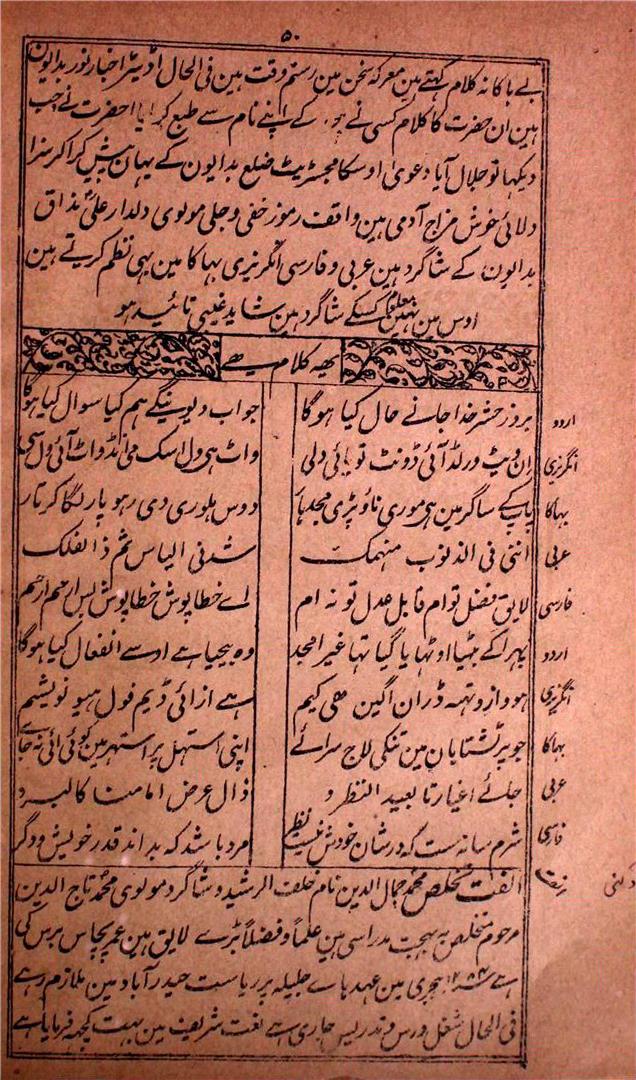 ۵۰
بے باکانہ کلام کہتے ہین معرکہ سخن مین رستم وقت ہین فی الحال اڈیٹر اخبار نور بدایون
ہین ان حضرت کا کلام کسی نے کے اپنے نام سے طبع کرایا احضرت نے جب
دیکہا تو جلال آیا دعویٰ اوسکا مجسٹریٹ ضلع بدایون کے یہان پیش کراکر سزا
دلائی خوش مزاج آدمی ہین واقف رموز خفی و جلی مولوی دلدار علی مذاق
بدایونی کے شاگرد ہین عربی و فارسی انگریزی بہاکا مین بہی نظم کرتے ہین
اوس مین نہین معلوم کسکے شاگرد ہین شاید غیبی تائید ہو
یہہ کلام ہے
اردو بروز حشر خدا جانے حال کیا ہوگا جواب دیوینگے ہم کیا سوال کیا ہوگا
انگریزی ان دیٹ ورلڈ آئی ڈونٹ تو دلی واٹ ہی ول اسک می انڈ واٹ آئی ول سی
بہاکا پاپ کے ساگر مین ہی موری ناؤ پڑی مجدہار دوس ہلوری دی رہو پار لگا کرتار
عربی اننی فی الذنوب منہمک الیاس ثم ذا لفلک
فارسی لایق فضل توام قابل عدل تو نہ ام اے خطا پوش خطا پوش بس ارحم ارحم
اردو پہرا کے بٹہیا اوٹہایا گیا تہا غیر امجد وہ بیحیا ہے اوسے انفعال کیا ہوگا
انگریزی ہو واز وتہہ ڈران اگین ہی کیم ہے از ائی ڈیم فول ہیو نو شیم
بہاکا جو پرتشٹابان مین تنکی لاج سرائے اپنی استہل پر استہر مین کوئی ائی نہ جائے
عربی جائے اغیار تا بعید النظر و ذال عرض امامنا کالبرد
فارسی شرم سانہ ست کہ در شان خودش نیست نظر مرد باشد کہ بداند قدر خویش و دگر
الفت تخلص محمد جمال الدین نام خلف الرشید و شاگرد مولوی محمد تاج الدین
دکنی
مرحوم متخلص بہ بہجت مدراسی ہین علماً و فضلاً بڑے لایق ہین عمر پچاس برس کی
ہے ہجری مین عہدہاے جلیلہ پر ریاست حیدرآباد مین ملازم رہے
فی الحال شغل درس و تدریس جاری ہے نعت شریف مین بہت کچہہ فرمایا ہے